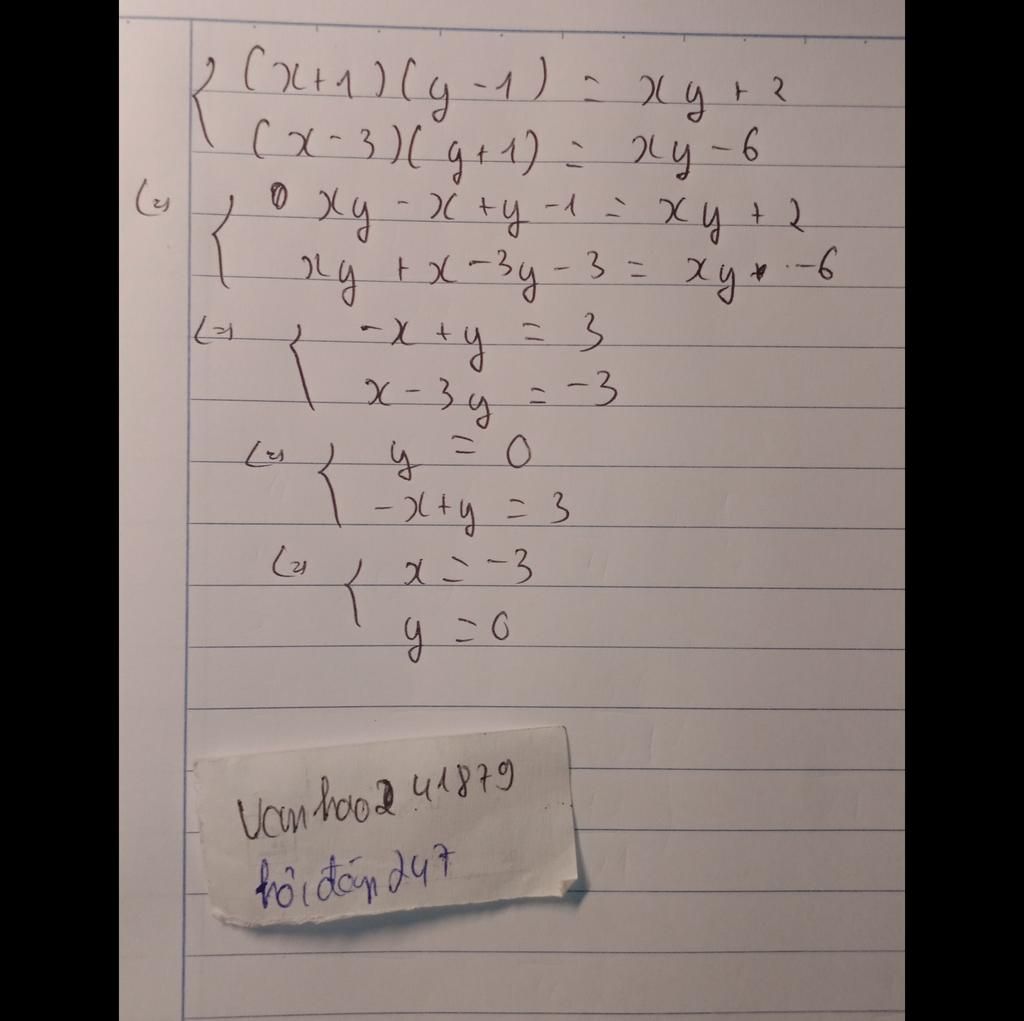 { (x+1)(y-1) = xy + 2
(x-3)(y+1) = xy - 6
(=) { xy - x + y - 1 = xy + 2
xy + x - 3y - 3 = xy - 6
(=) { -x + y = 3
x - 3y = -3
(=) { y = 0
-x + y = 3
(=) { x = -3
y = 0
vanhao241879
hỏi đáp 247